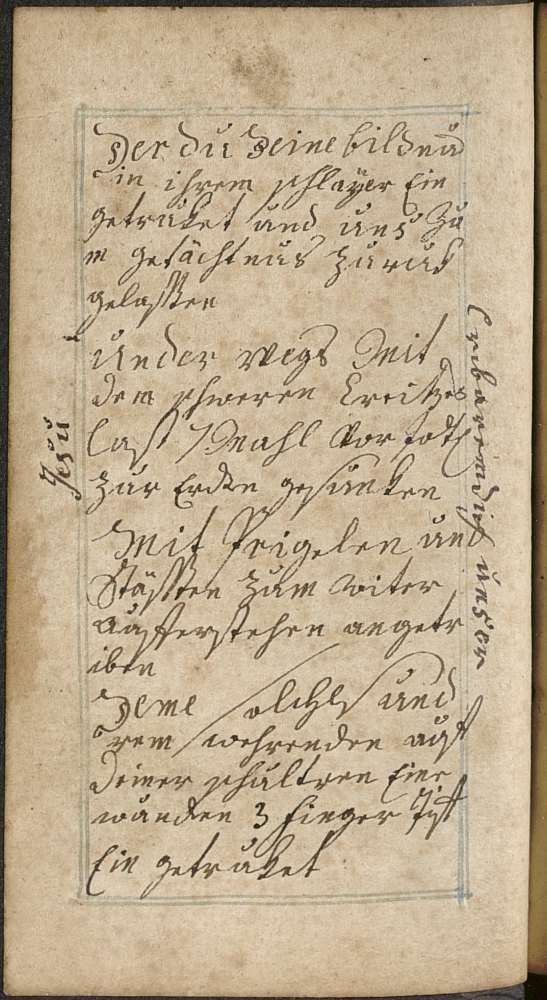 Der du Deine bildnuß
in ihrem schlayer Ein
getruket und uns Zu
m getächtnus zuruk
gelassen
Under wegs Mit
dem schweren Creitzes
last 7 Mahl Vor todt
zur Erden gesunken
Mit Prigelen und
Stässen zum witer
auferstehen angetr
iben
Deme solches und
rem wehrenden auf
deiner schultren Eine
wunden 3 finger tif
Ein getruket
Jesu
Erbarme dich unser